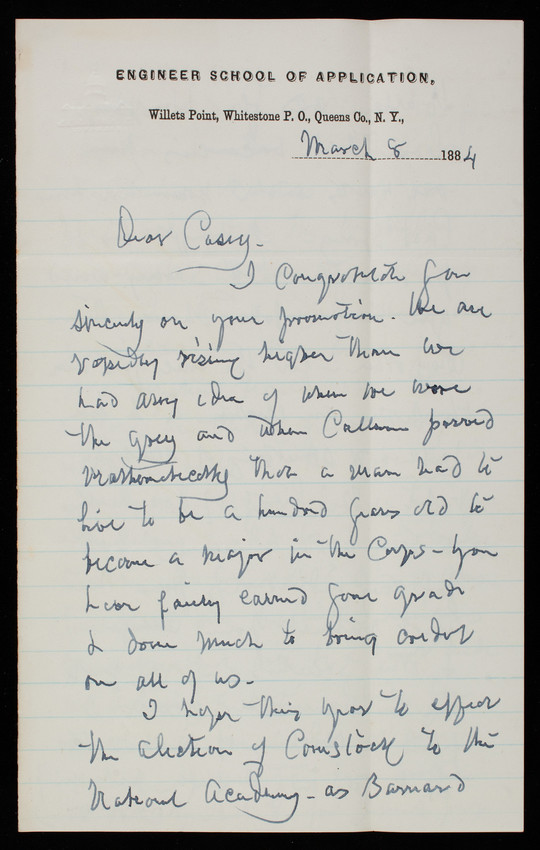 ENGINEER SCHOOL OF APPLICATION,
Willets Point, Whitestone P. O., Queens Co., N. Y.,
March 8 1884
Dear Casey -
I congratulate you
sincerely on your promotion. We are
rapidly rising higher than we
had any idea of when we wore
the grey and when Cullum proved
mathematically that a man had to
live to be a hundred years old to
become a major in the Corps - You
have fairly earned your grade
& done much to bring credit
on all of us -
I hope this year to effect
the election of Comstock to the
National Academy - as Barnard